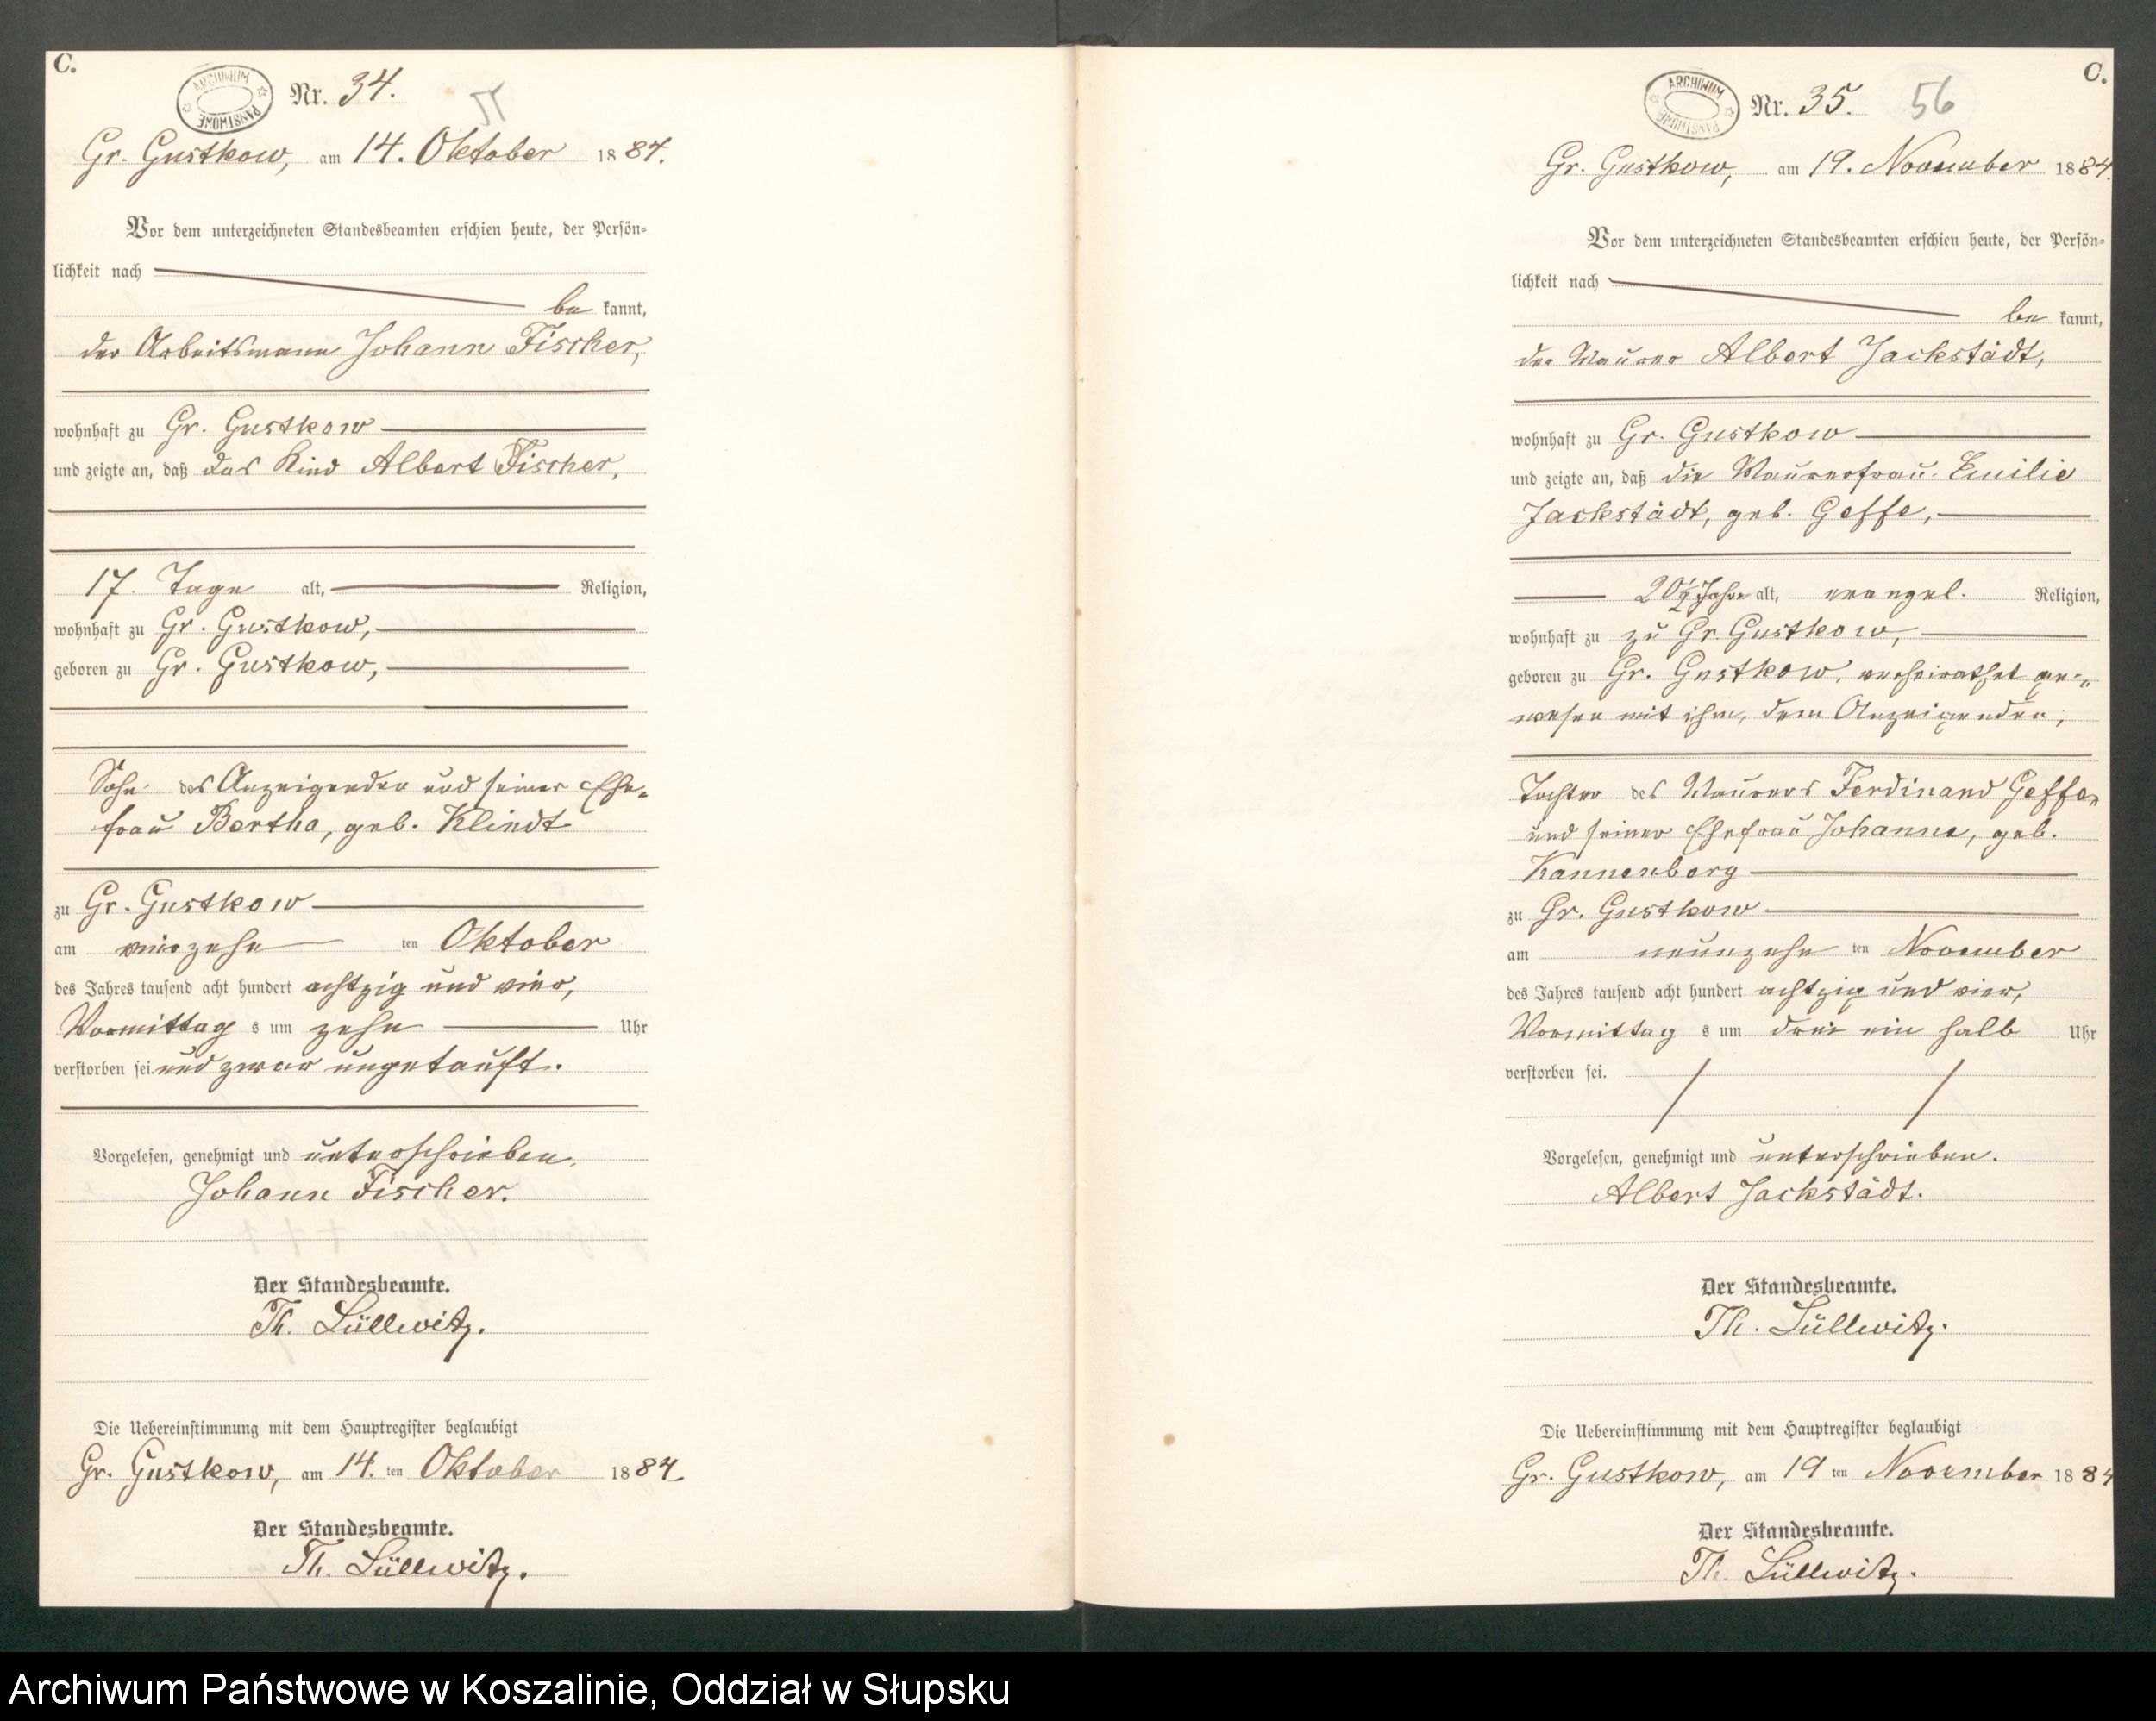 C.
ARCHIWUM PAŃSTWOWE
Nr. 34.
Gr. Gustkow, am 14. Oktober 1884.
Vor dem unterzeichneten Standesbeamten erschien heute, der Persön-
lichkeit nach
be kannt,
der Arbeitsmann Johann Fischer,
wohnhaft zu Gr. Gustkow
und zeigte an, daß das Kind Albert Fischer,
17. Tage alt, Religion,
wohnhaft zu Gr. Gustkow,
geboren zu Gr. Gustkow,
Sohn des Anzeigenden und seiner Ehe-
frau Bertha, geb. Klindt
zu Gr. Gustkow
am vierzehn ten Oktober
des Jahres tausend acht hundert achtzig und vier,
Vormittag s um zehn Uhr
verstorben sei und zwar ungetauft.
Vorgelesen, genehmigt und unterschrieben.
Johann Fischer.
Der Standesbeamte.
Th. Lüllwitz.
Die Uebereinstimmung mit dem Hauptregister beglaubigt
Gr. Gustkow, am 14. ten Oktober 1884.
Der Standesbeamte.
Th. Lüllwitz.
C.
ARCHIWUM PAŃSTWOWE
Nr. 35. 56
Gr. Gustkow, am 19. November 1884.
Vor dem unterzeichneten Standesbeamten erschien heute, der Persön-
lichkeit nach
be kannt,
der Maurer Albert Jackstädt,
wohnhaft zu Gr. Gustkow
und zeigte an, daß die Maurerfrau Emilie
Jackstädt, geb. Geffe,
20 1/2 Jahre alt, evangel. Religion,
wohnhaft zu zu Gr Gustkow,
geboren zu Gr. Gustkow, verheirathet ge-
wesen mit ihm, dem Anzeigenden,
Tochter des Maurers Ferdinand Geffe,
und seiner Ehefrau Johanne, geb.
Kannenberg
zu Gr. Gustkow
am neunzehn ten November
des Jahres tausend acht hundert achtzig und vier,
Vormittag s um drei ein halb Uhr
verstorben sei.
Vorgelesen, genehmigt und unterschrieben.
Albert Jackstädt.
Der Standesbeamte.
Th. Lüllwitz.
Die Uebereinstimmung mit dem Hauptregister beglaubigt
Gr. Gustkow, am 19 ten November 1884
Der Standesbeamte.
Th. Lüllwitz.
Archiwum Państwowe w Koszalinie, Oddział w Słupsku